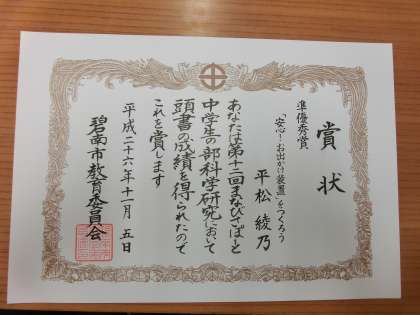 賞状
準優秀賞
「安心!お出かけ装置」をつくろう
平松 綾乃
あなたは第十二回まなびぴあーと
中学生の部科学研究において
頭書の成績を得られたので
これを賞します
平成二十六年十一月 五日
碧南市教育委員会